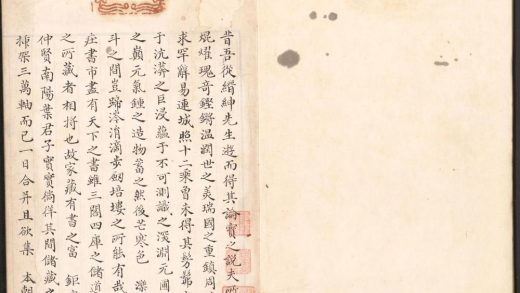 昔吾從縉紳先生遊而得其論寶之說夫
焜燿瑰奇鏗鏘溫潤世之美瑞國之重鎮周
求罕辭易連城照十二乘曾未得其髣髴
於沆漭之巨浸蘊于不可測識之淵元圃
之巔元氣鍾之造物蓄之然後芒寒色
斗之間豈歸涔消滴步培塿之所能有哉
書市盡有天下之書雖三閣四庫之儲道
之所藏者相埒也故家藏有書之富 鉅
仲賢南陽葉君子實實倘佯其間儲藏之
揷架三萬軸而已一日合幷且欲集 本朝